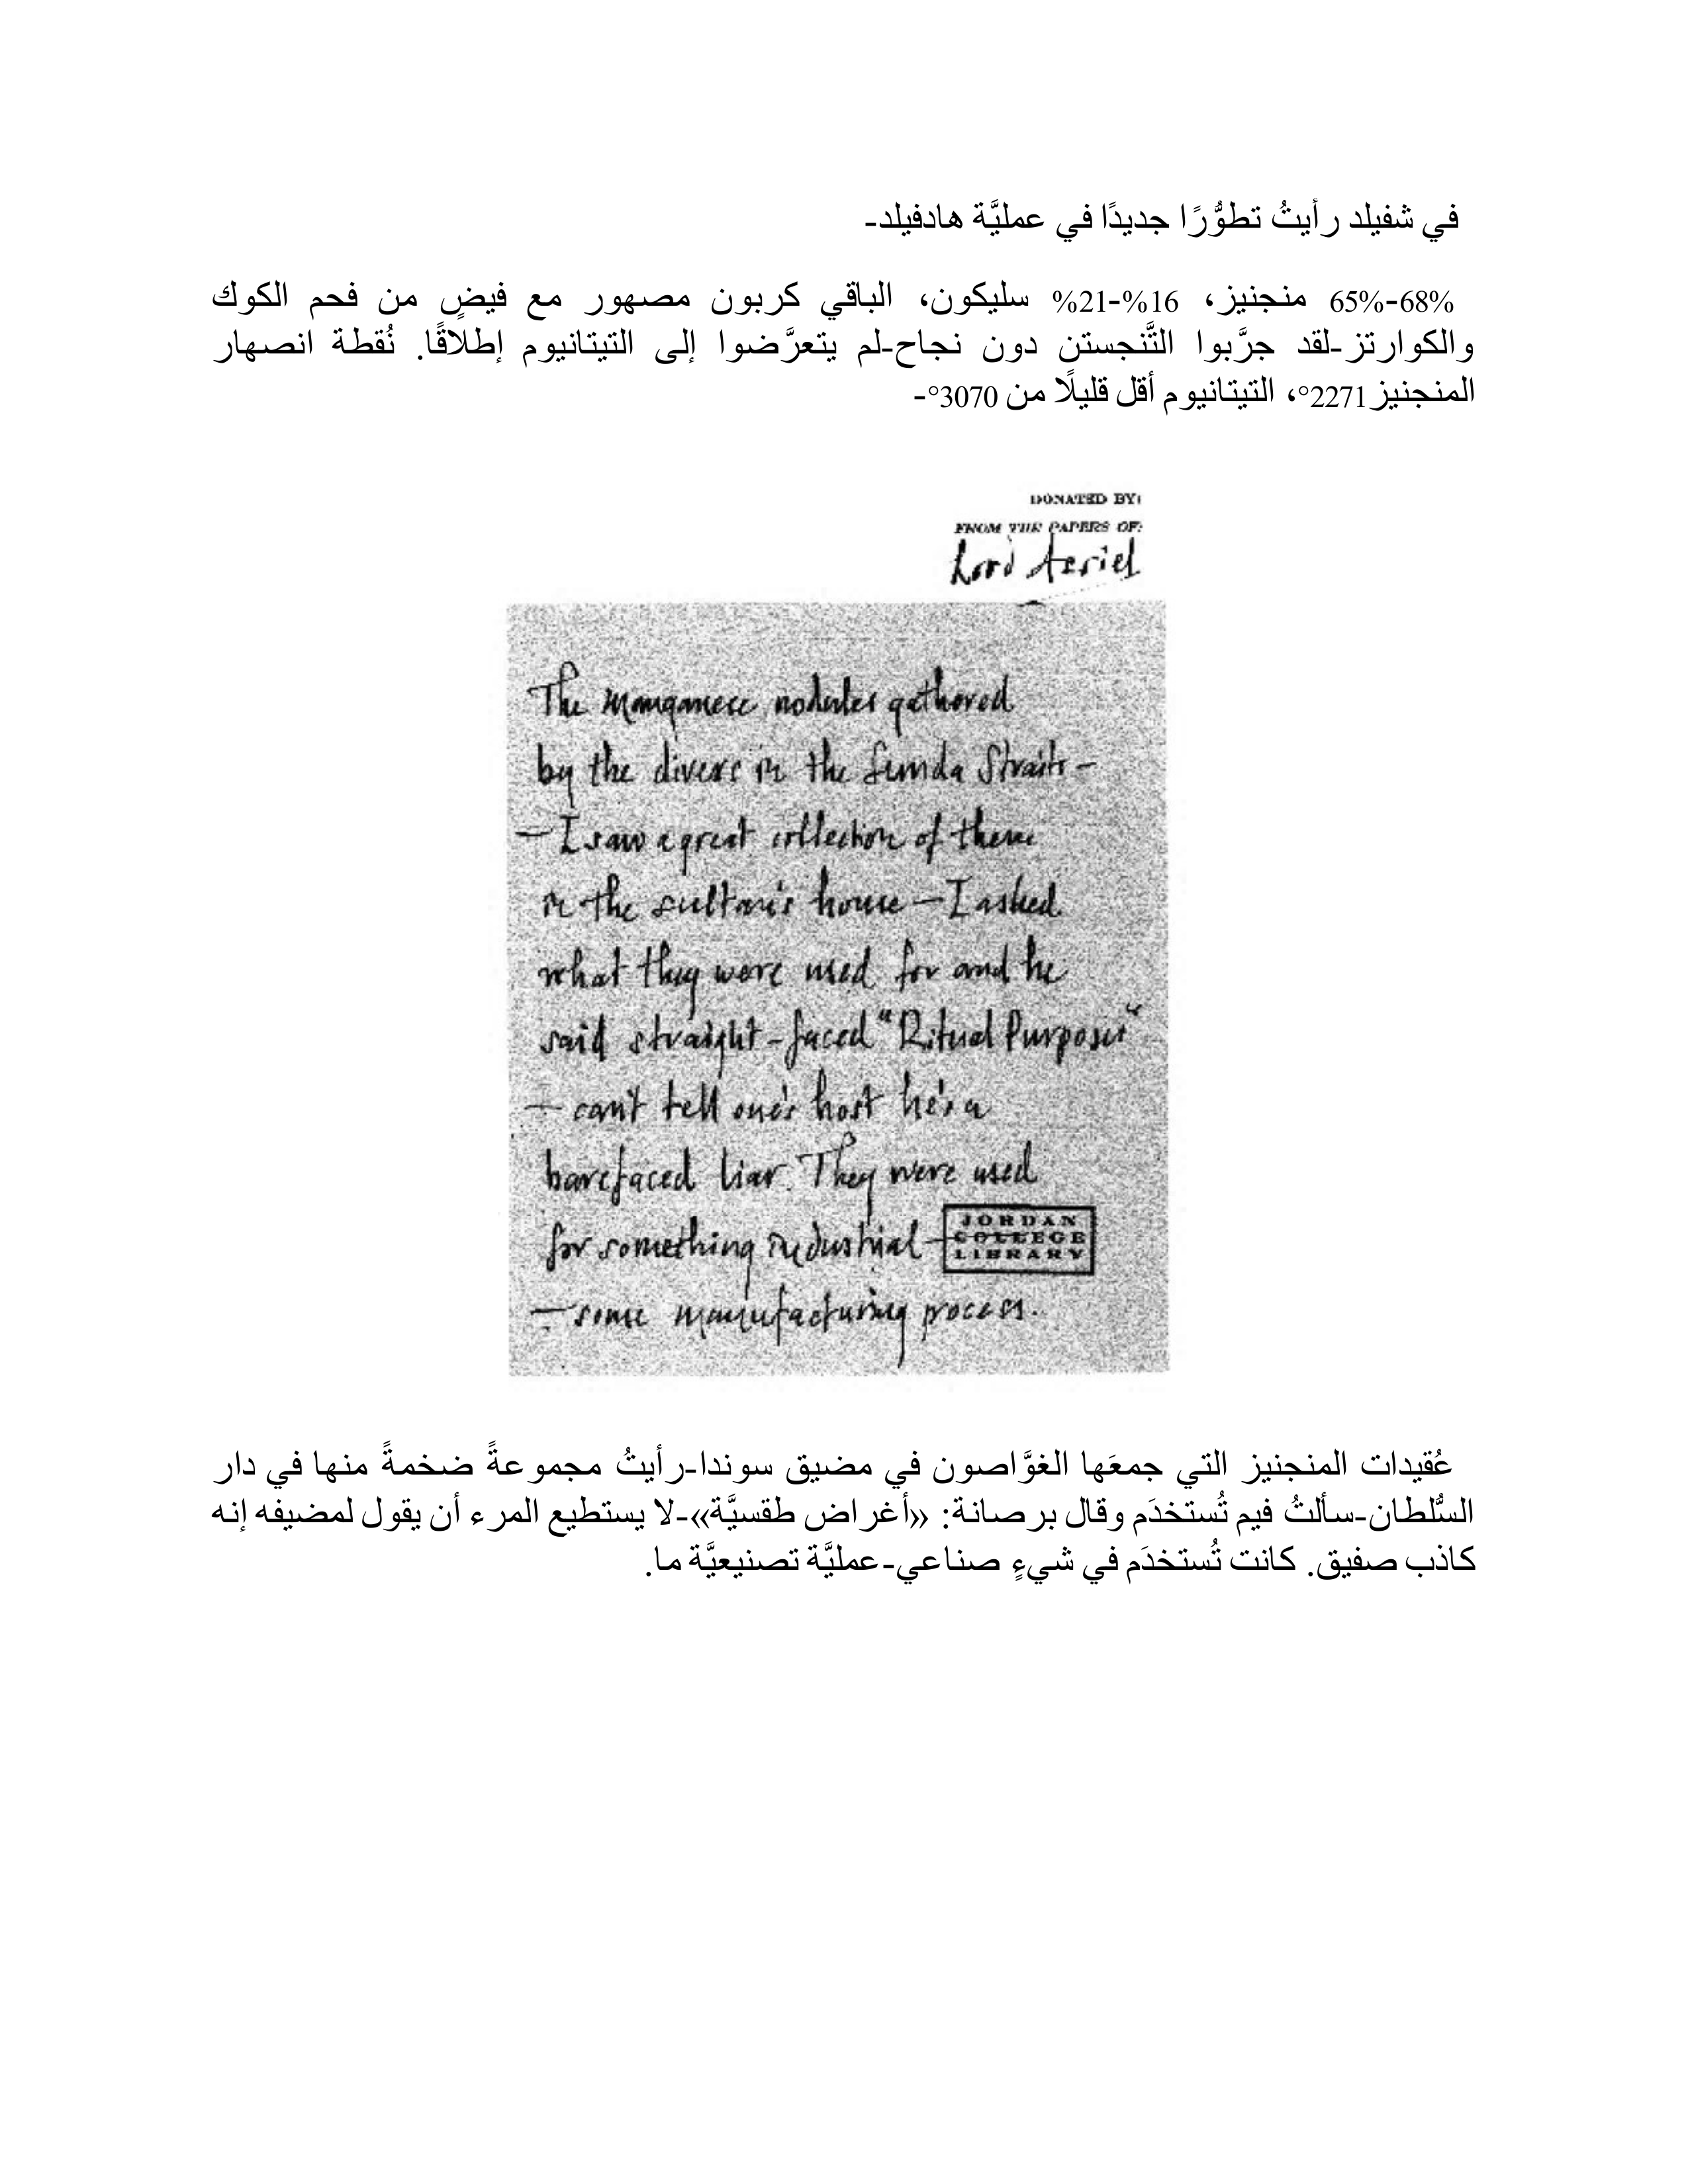 في شفيلد رأيتُ تطوُّرًا جديدًا في عمليَّة هادفيلد-
65%-68% منجنيز، 16%-21% سليكون، الباقي كربون مصهور مع فيضٍ من فحم الكوك
والكوارتز-لقد جرَّبوا التَّنجستن دون نجاح-لم يتعرَّضوا إلى التيتانيوم إطلاقًا. نُقطة انصهار
المنجنيز2271°، التيتانيوم أقل قليلًا من 3070°-
DONATED BY:
FROM THE PAPERS OF:
Lord Asriel
The manganese nodules gathered
by the divers in the Sunda Straits -
- I saw a great collection of them
in the sultan's house - I asked
what they were used for and he
said straight-faced "Ritual Purposes"
- can't tell one's host he's a
barefaced liar. They were used
for something industrial -
JORDAN
COLLEGE
LIBRARY
- some manufacturing process.
عُقيدات المنجنيز التي جمعَها الغوَّاصون في مضيق سوندا-رأيتُ مجموعةً ضخمةً منها في دار
السُّلطان-سألتُ فيم تُستخدَم وقال برصانة: «أغراض طقسيَّة»-لا يستطيع المرء أن يقول لمضيفه إنه
كاذب صفيق. كانت تُستخدَم في شيءٍ صناعي-عمليَّة تصنيعيَّة ما.